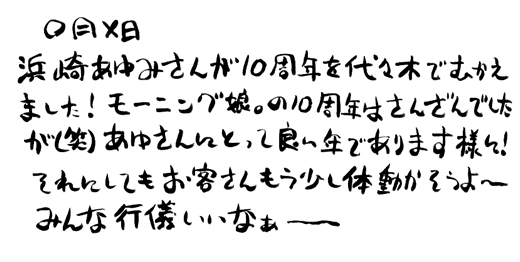 〇月×日
浜崎あゆみさんが10周年を代々木でむかえ
ました！モーニング娘。の10周年はさんざんでした
が(笑)あゆさんにとって良い年であります様に！
それにしてもお客さんもう少し体動かそうよ〜
みんな行儀いいなぁ――